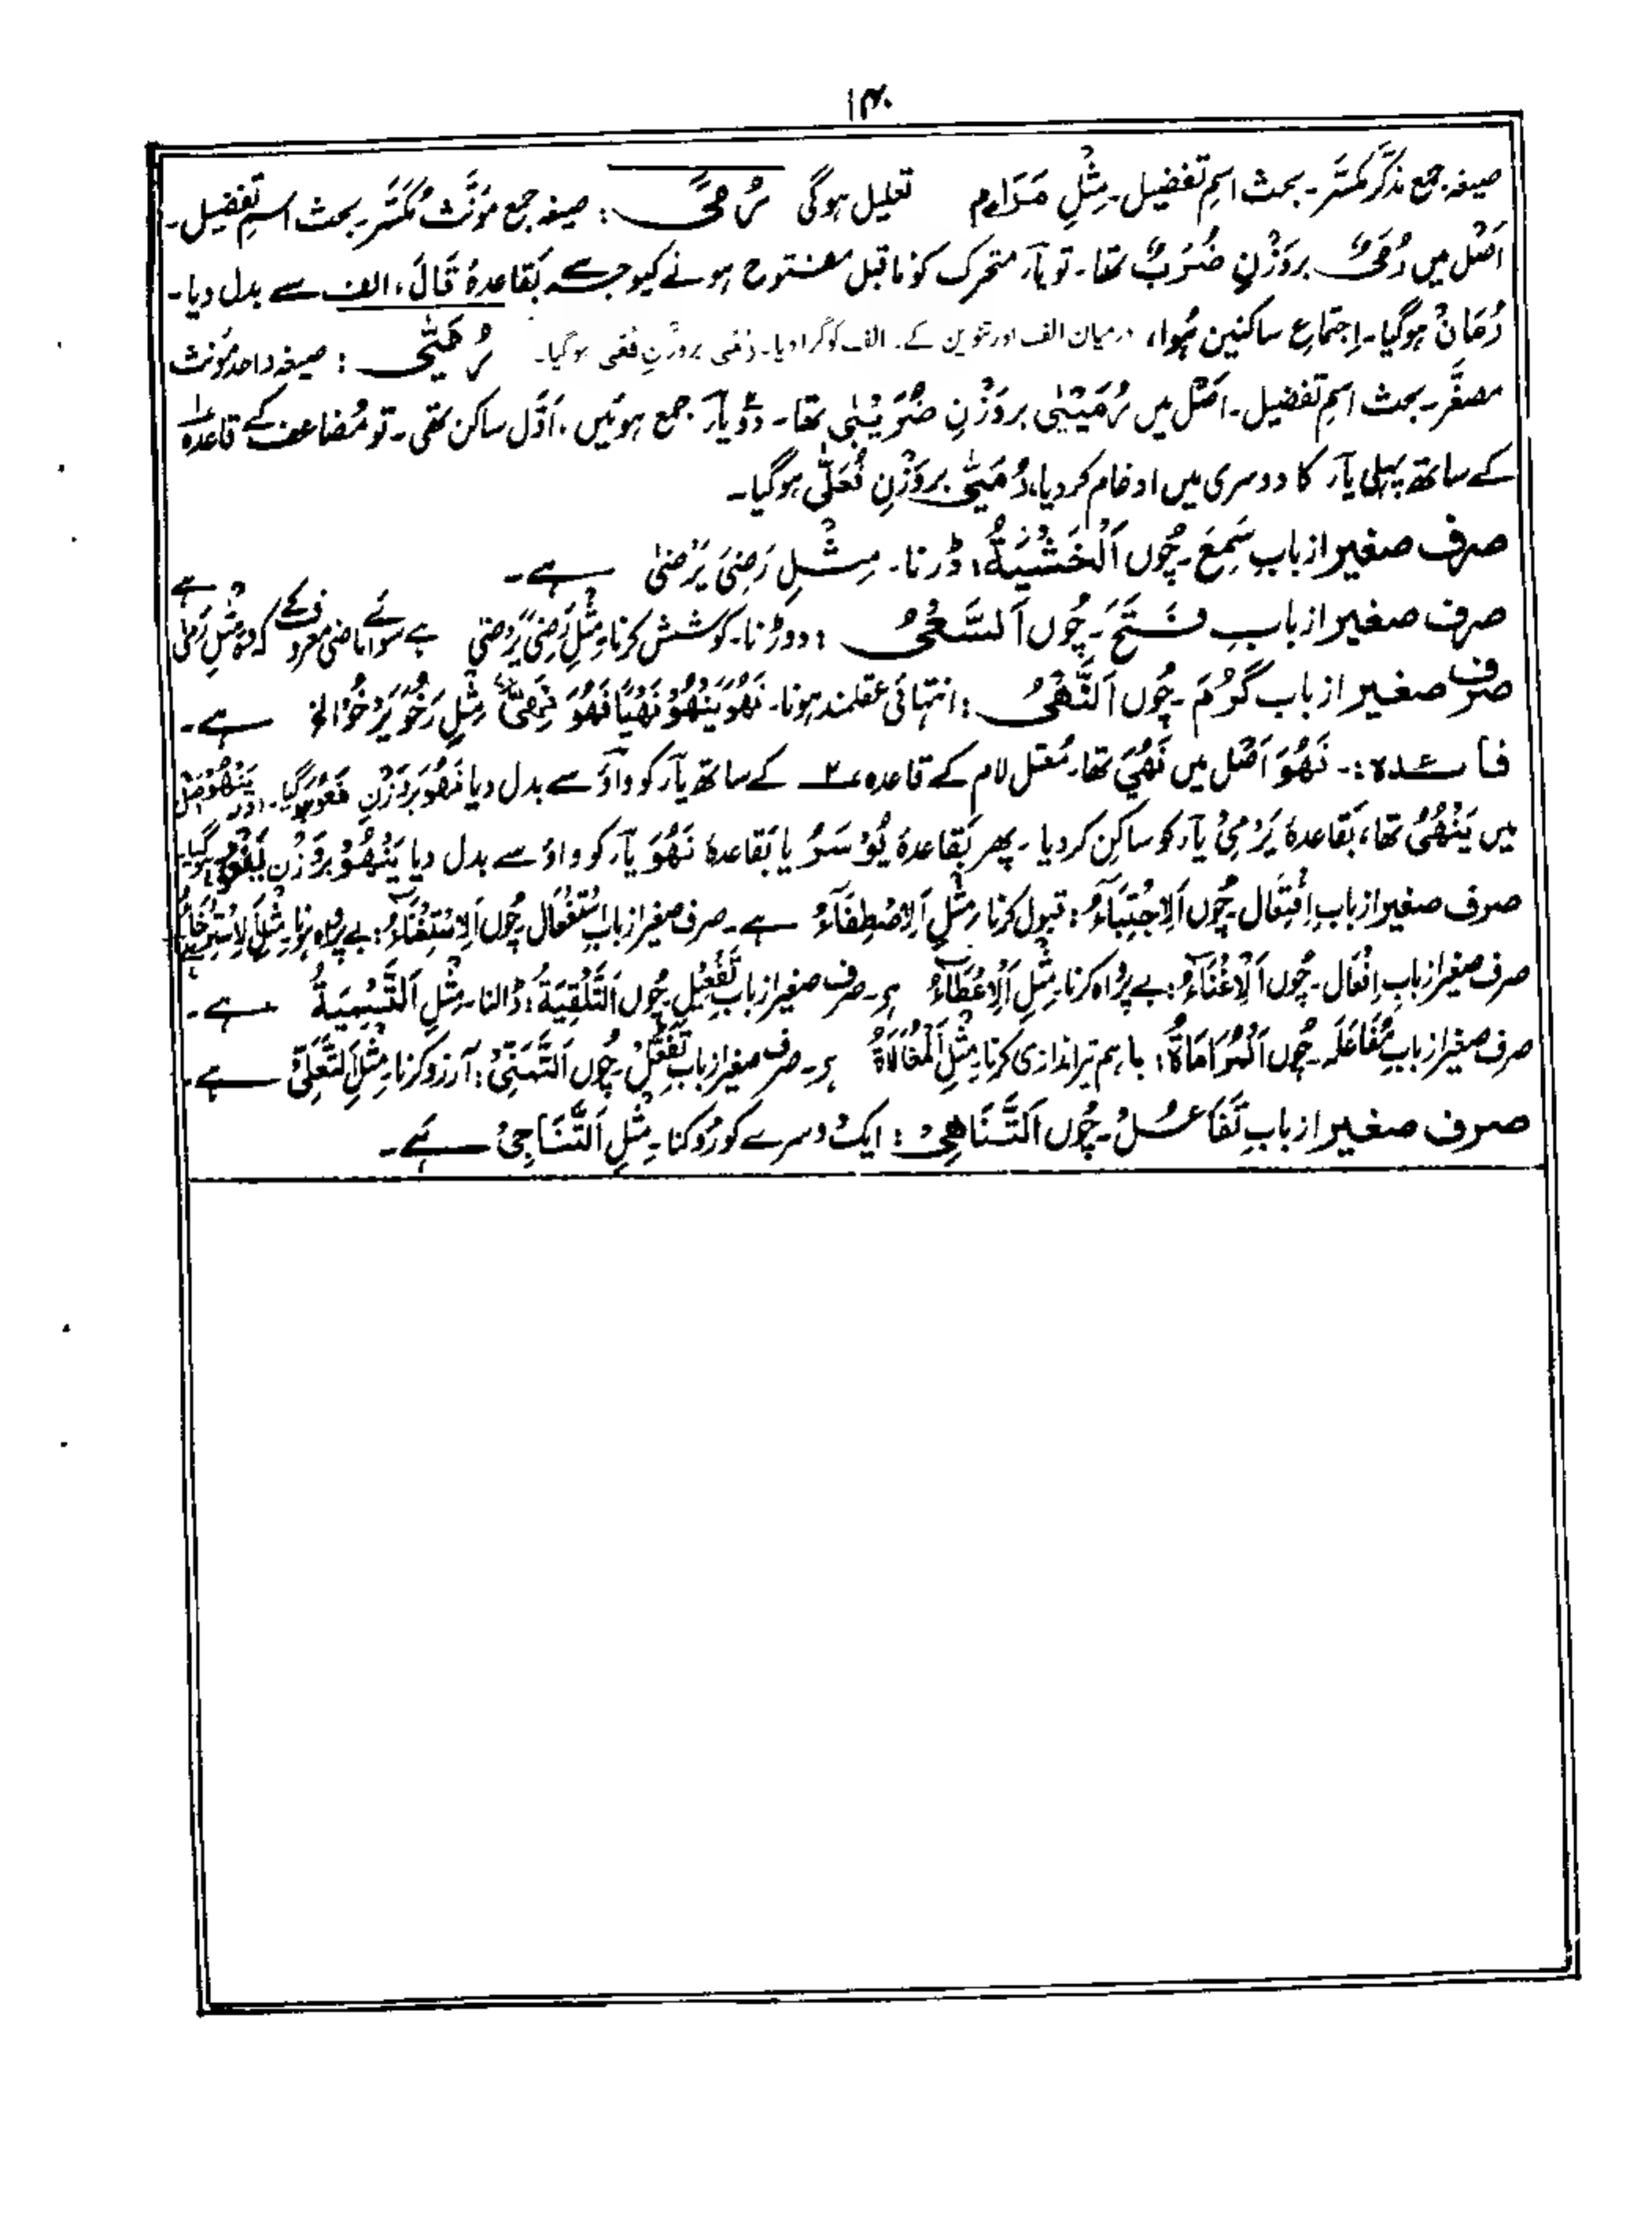 ۱۴۰
صیغہ جمع مذکّر مکسَّر۔ بحث اسمِ تفضیل۔ مِثْلِ مَدَاعٍ تعلیل ہوگی رُمًی : صیغہ جمع مؤنَّث مُکسَّر۔ بحث اسمِ تفضیل۔
اَصْل میں رُمَیٌ بروَزْنِ ضُرَبٌ تھا۔ تو یآر متحرک کو ماقبل مفتوح ہونے کیوجہ سے بَقاعدۂ قَالَ، الف سے بدل دیا۔
رُمَانْ ہوگیا۔ اِجتماعِ ساکنین ہُوا، درمیان الف اور تنوین کے۔ الف کو گرا دیا۔ رُمًی بروزْنِ فُعًی ہوگیا۔ رُمَیّٰی : صیغہ واحد مؤنث
مصغَّر۔ بحث اسمِ تفضیل۔ اَصْل میں رُمَیْیٰی بروَزْنِ ضُرَیْبٰی تھا۔ دُو یآر جمع ہوئیں، اَوَّل ساکن تھی۔ تو مُضاعف کے قاعدہ ۱
کے ساتھ پہلی یآر کا دوسری میں ادغام کر دیا، رُمَیّٰی بروَزْنِ فُعَلّٰی ہوگیا۔
صرف صغیر از بابِ سَمِعَ۔ چُوں اَلْخَشْیَۃُ: ڈرنا۔ مِثْلِ رَضِیَ یَرْضٰی ہے۔
صرف صغیر از بابِ فَتَحَ۔ چُوں اَلسَّعْیُ : دوڑنا۔ کوشش کرنا، مِثْلِ رَضِیَ یَرْضٰی ہے سوائے ماضی معروف کے کہ وہ مثلِ رَمٰی ہے
صرف صغیر از باب کَرُمَ۔ چُوں اَلنَّھْیُ : انتہائی عقلمند ہونا۔ نَھُوَ یَنْھُوْ نَھْیًا فَھُوَ نَھِیٌّ مثلِ رَخُوَ یَرْخُوْ الخ ہے۔
فائدہ:۔ نَھُوَ اَصْل میں نَھُیَ تھا۔ مُعتل لام کے قاعدہ ۲ کے ساتھ یآر کو وآؤ سے بدل دیا نَھُوَ بروَزْنِ فَعُوَ ہوگیا۔ اور یَنْھُوْ اصل
میں یَنْھُیُ تھا، بَقاعدۂ یَرْمِیْ یآر کو ساکِن کر دیا۔ پھر بَقاعدۂ یُوْسَرُ یا بَقاعدۂ نَھُوَ یآر کو واؤ سے بدل دیا یَنْھُوْ بروَزْن یَفْعُوْ ہوگیا۔
صرف صغیر از بابِ اِفْتِعَال۔ چُوں اَلْاِجْتِبَآءُ: قبول کرنا، مِثْلِ اَلْاِصْطِفَآءُ ہے۔ صرف صغیر از بابِ اِسْتِفْعَال چُوں اَلْاِسْتِغْنَآءُ: بے پرواہ ہونا۔ مثلِ اَلْاِسْتِرْخَآءُ ہے۔
صرف صغیر از بابِ اِفْعَال۔ چُوں اَلْاِغْنَآءُ: بے پرُواہ کرنا، مِثْلِ اَلْاِعْطَآءُ ہے۔ صرف صغیر از باب تَفْعِیْل چُوں اَلتَّلْقِیَۃُ: ڈالنا۔ مثْلِ اَلتَّسْمِیَۃُ ہے۔
صرف صغیر از بابِ مُفَاعَلَہ۔ چُوں اَلْمُرَامَاۃُ: باہم تیر اندازی کرنا، مِثْلِ اَلْمُغَالَاۃُ ہے۔ صرف صغیر از باب تَفَعُّلْ۔ چُوں اَلتَّمَنِّیْ: آرزو کرنا، مِثْلِ اَلتَّعَلِّیْ ہے۔
صرف صغیر از بابِ تَفَاعُلْ۔ چُوں اَلتَّنَاھِیْ: ایک دوسرے کو روکنا۔ مِثْلِ اَلتَّنَاجِیْ ہے۔